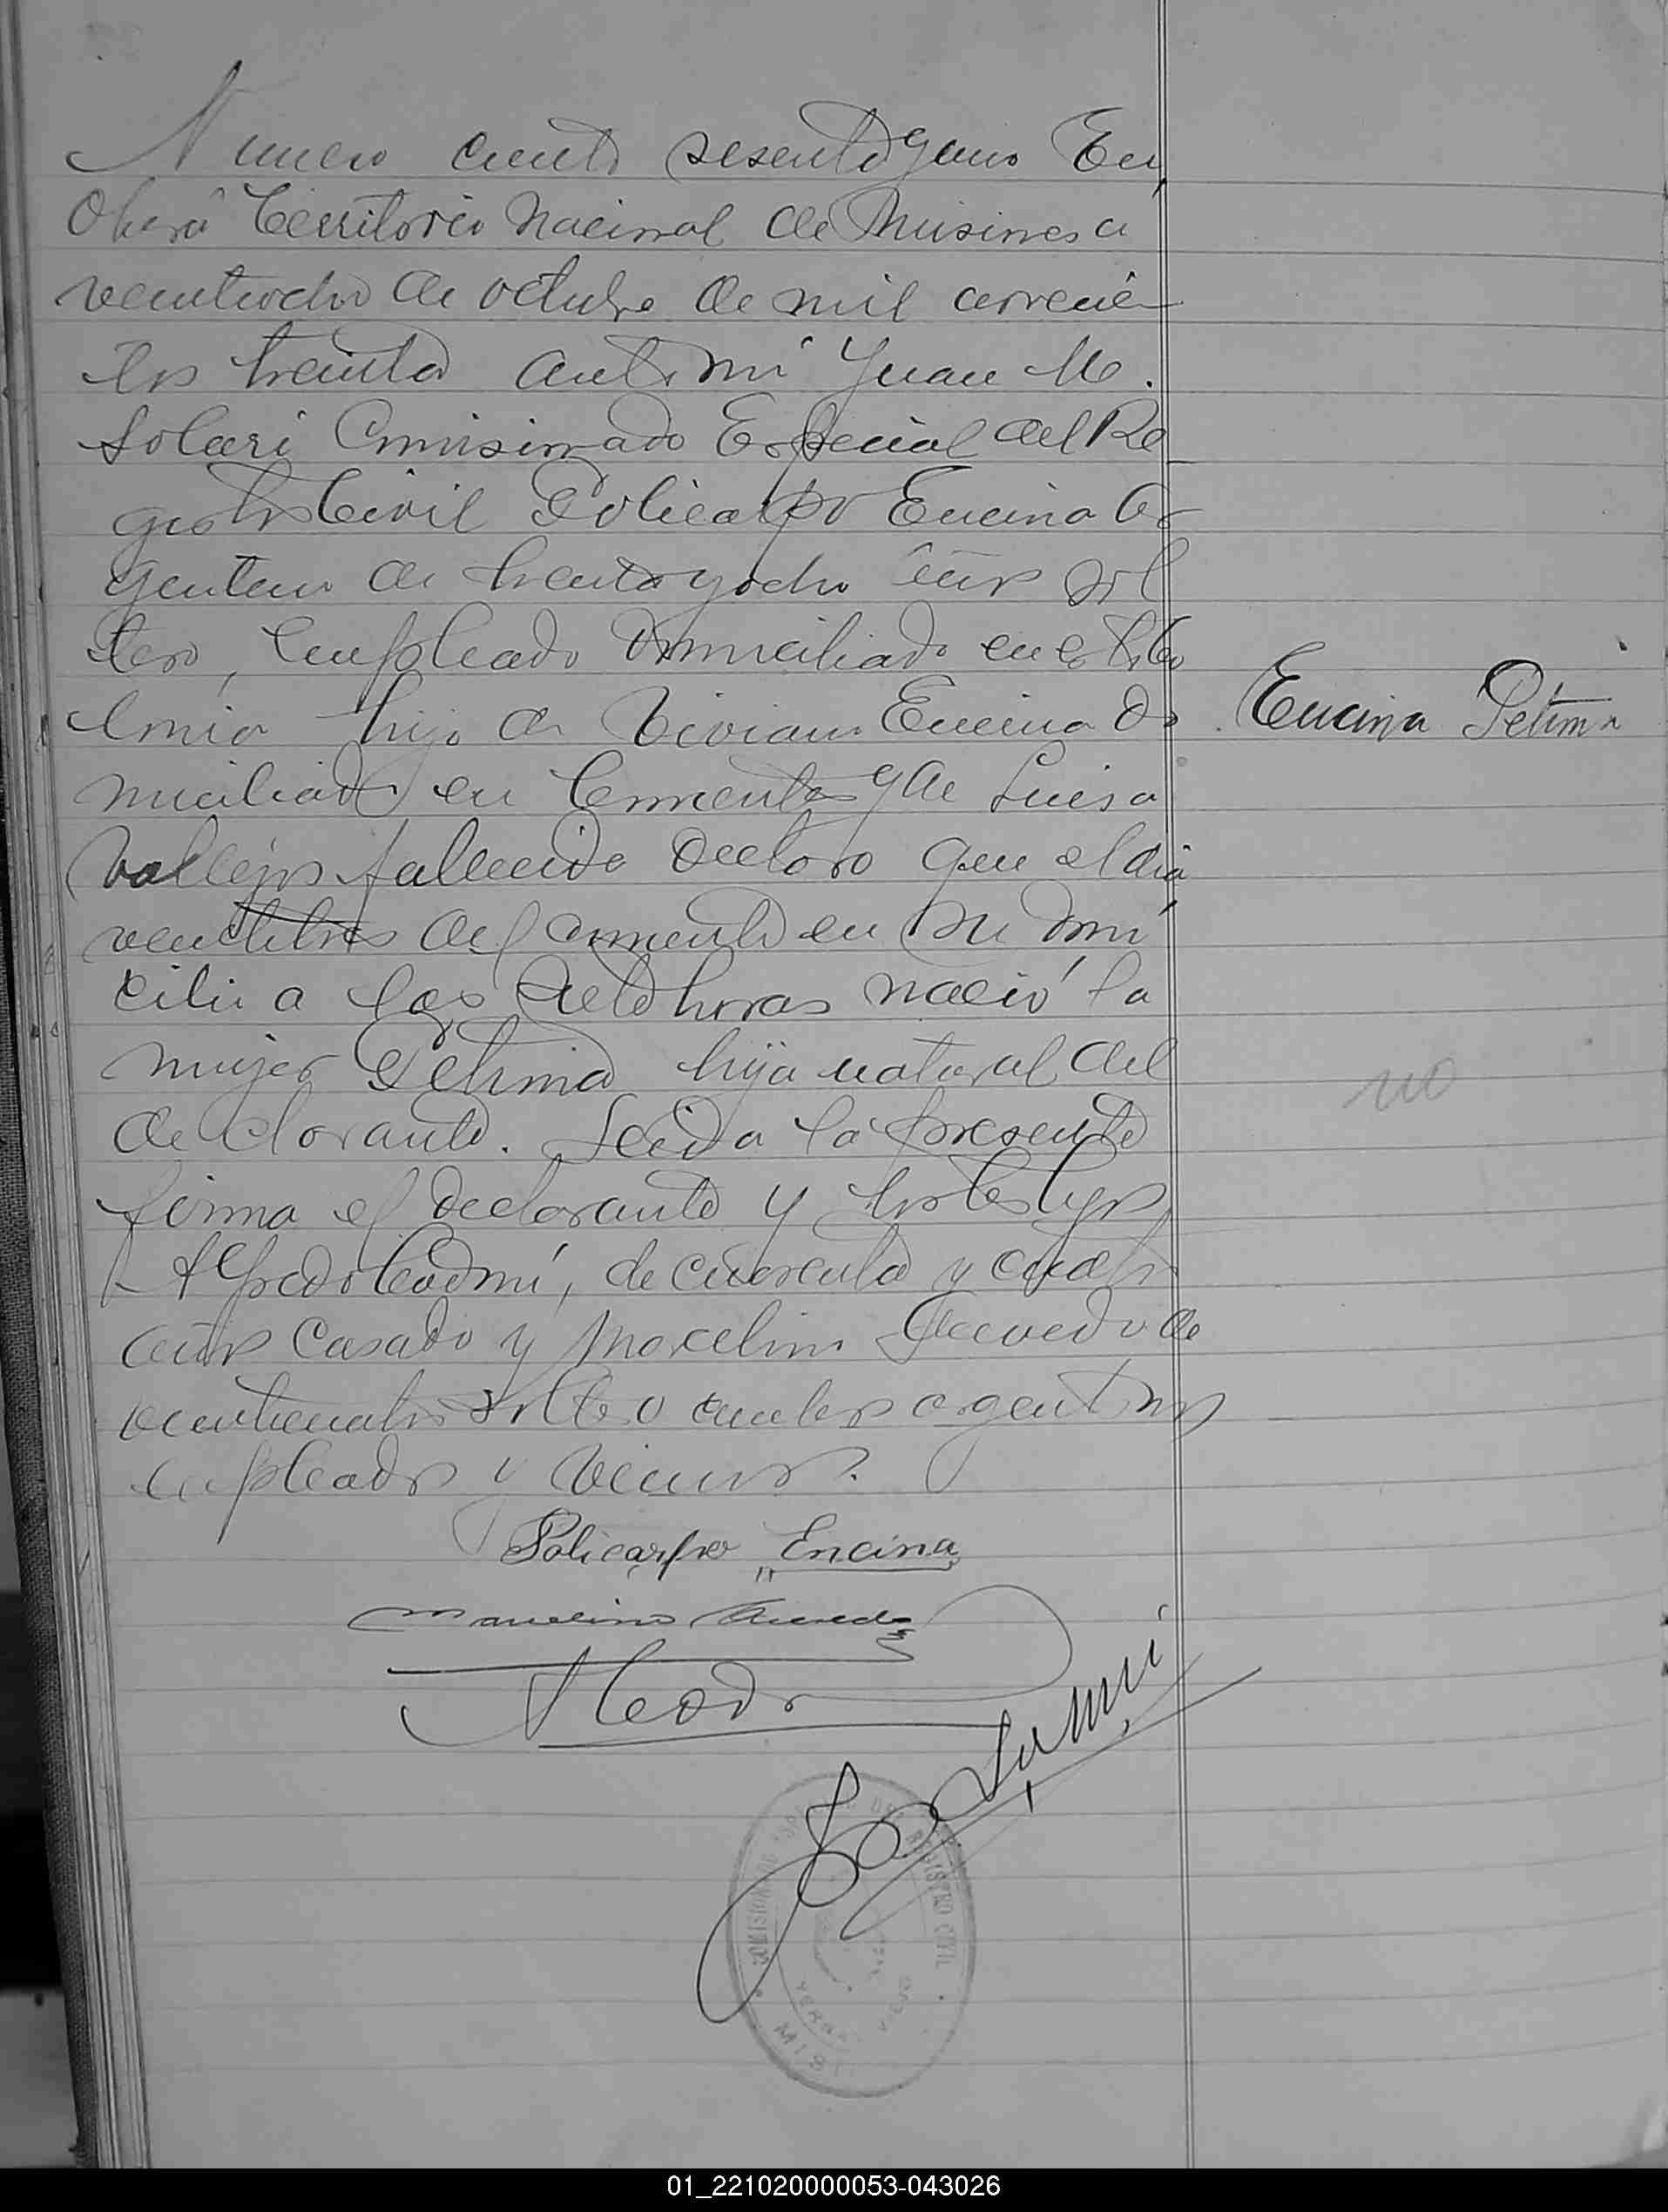 Numero ciento sesenta y uno En
Oberá Territorio Nacional de Misiones a
veintiocho de octubre de mil novecien
tos treinta ante mi Juan M.
Solari Comisionado Especial del Re
gistro Civil Policarpo Encina Ar
gentino de treinta y ocho años sol
tero, empleado domiciliado en esta Co
lonia hijo de Viviano Encina do
miciliado en Corrientes y de Luisa
Vallejos fallecida declaro que el dia
veintitres del corriente en su domi
cilio a las siete horas nació la
mujer hija natural del
declarante. Leida la presente
firma el declarante y los testigos
Alfredo Codmí, de cuarenta y cuatro
años casado y Marcelino Acevedo de
veinticuatro soltero ambos argentinos
empleados y vecinos.
Encina
no
Policarpo Encina
Marcelino Acevedo
COMISIONADO DEL REGISTRO CIVIL